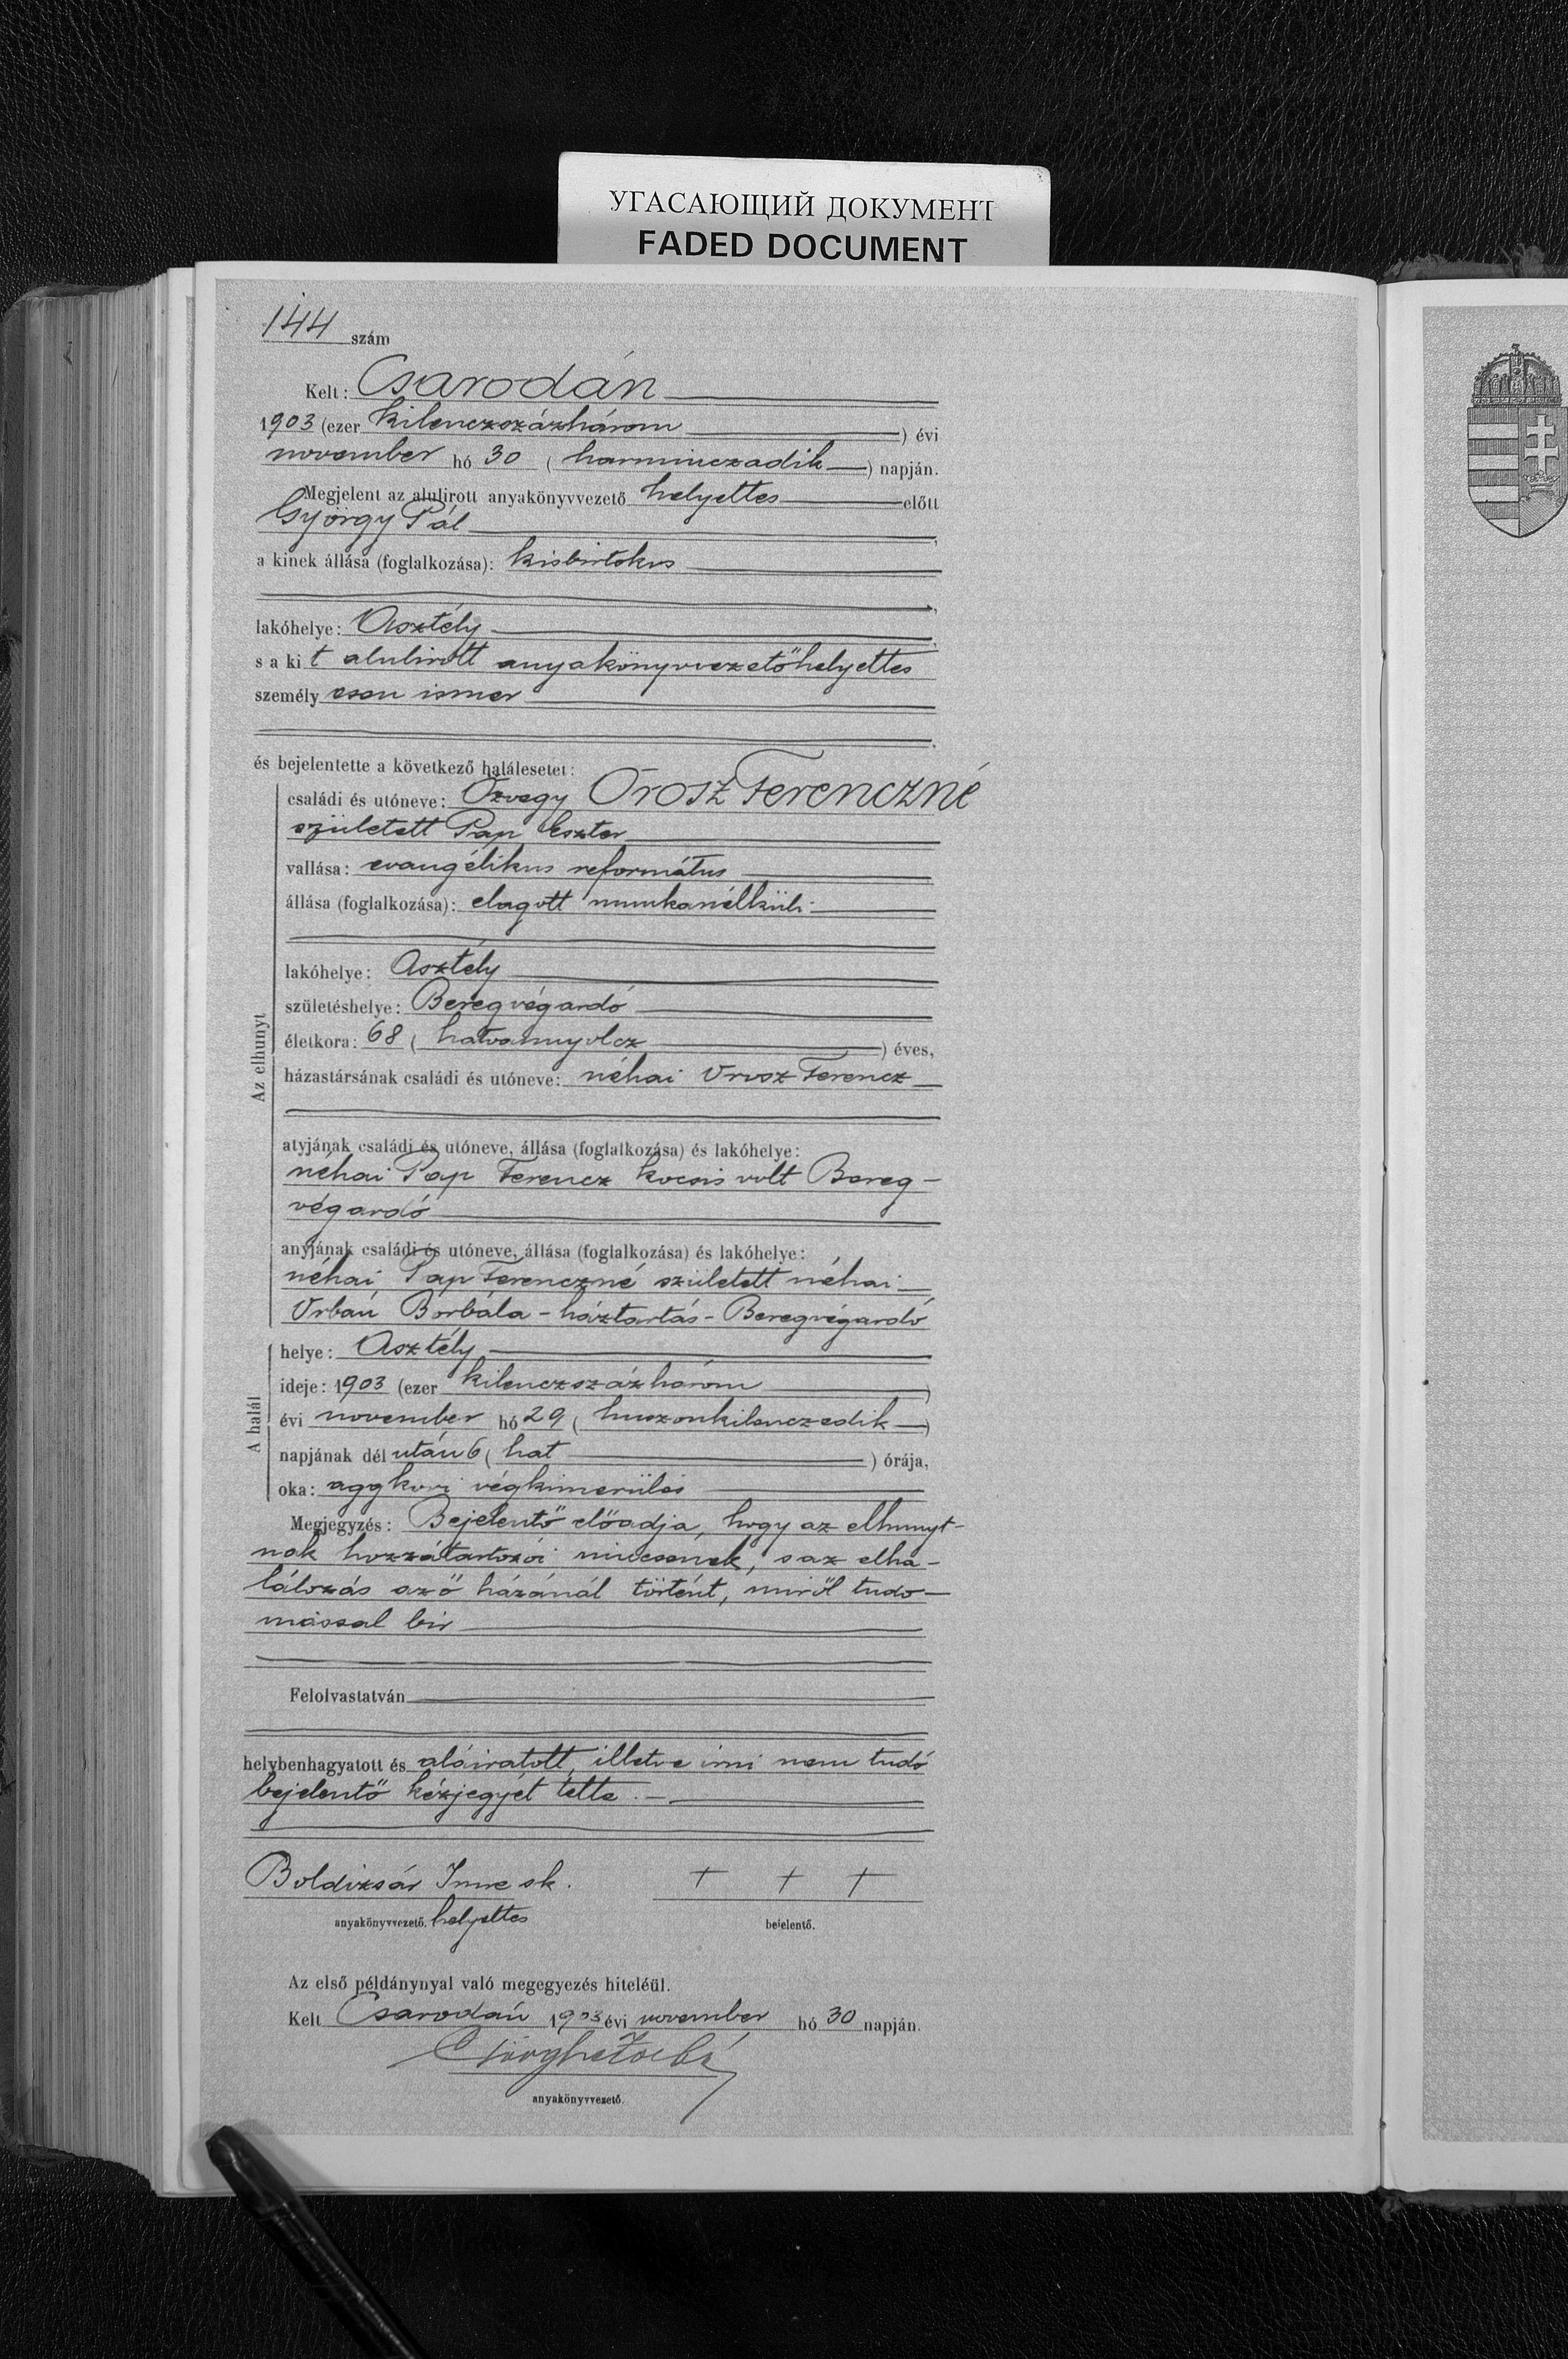 УГАСАЮЩИЙ ДОКУМЕНТ
FADED DOCUMENT
144 szám
Kelt: Csarodán
1903 (ezer kilenczszázhárom) évi
november hó 30 (harminczadik) napján.
Megjelent az alulirott anyakönyvvezető helyettes előtt
György Pál,
a kinek állása (foglalkozása): kisbirtokos
lakóhelye: Asztély
s a kit alulirott anyakönyvvezetőhelyettes
személyesen ismer
és bejelentette a következő halálesetet:
családi és utóneve: Özvegy Orosz Ferenczné
született Pap Eszter
vallása: evangélikus református
állása (foglalkozása): elagott munkanélküli
lakóhelye: Asztély
születéshelye: Beregvégardó
életkora: 68 (hatvannyolcz) éves,
házastársának családi és utóneve: néhai Orosz Ferencz
atyjának családi és utóneve, állása (foglalkozása) és lakóhelye:
néhai Pap Ferencz kocsis volt Bereg-
végardó
anyjának családi és utóneve, állása (foglalkozása) és lakóhelye:
néhai Pap Ferenczné született néhai
Urbán Borbála - háztartás - Beregvégardó
Az elhunyt
helye: Asztély
ideje: 1903 (ezer kilenczszázhárom)
évi november hó 29 (huszonkilenczedik)
napjának dél után 6 (hat) órája,
oka: aggkori végkimerülés
A halál
Megjegyzés: Bejelentő előadja, hogy az elhunyt-
nak hozzátartozói nincsenek, s az elha-
lálozás az ő házánál történt, miről tudo-
mással bir
Felolvastatván
helybenhagyatott és aláiratott, illetve irni nem tudó
bejelentő kézjegyét tette. -
Boldizsár Imre sk. + + +
anyakönyvvezető. helyettes bejelentő.
Az első példánynyal való megegyezés hiteléül.
Kelt Csarodán 1903 évi november hó 30 napján.
anyakönyvvezető.